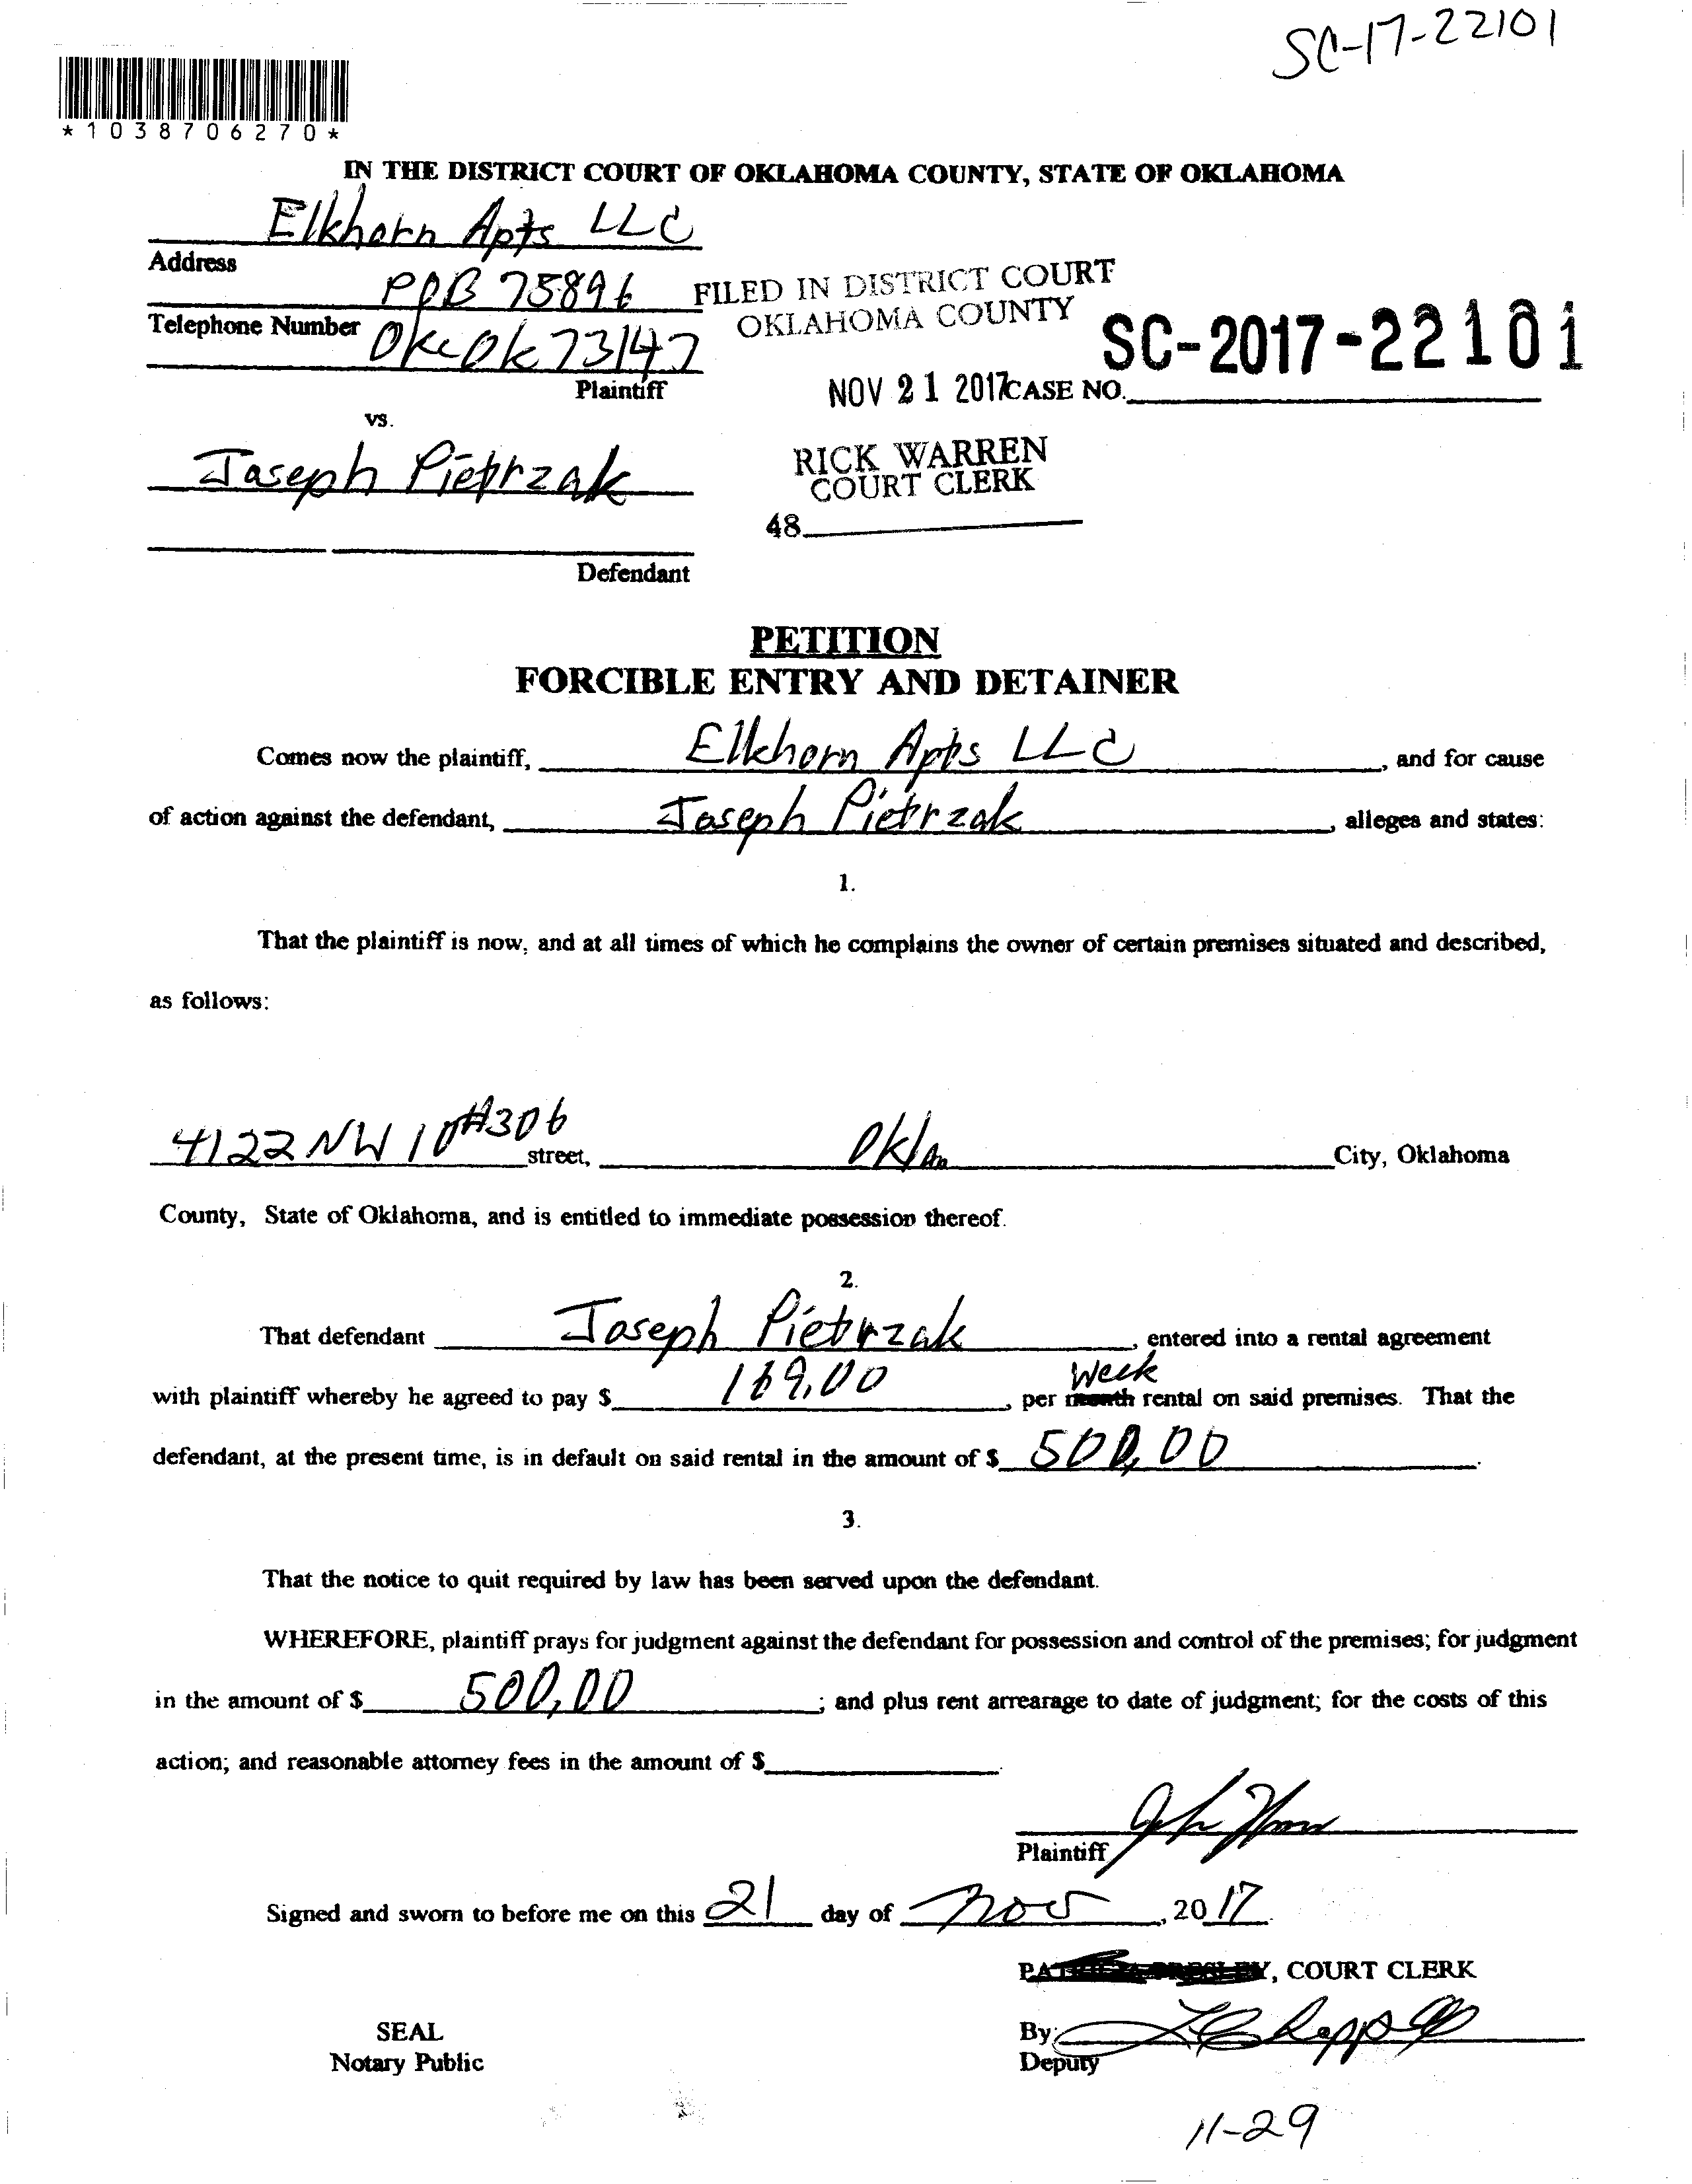 SC-17-22101
*1038706270*
IN THE DISTRICT COURT OF OKLAHOMA COUNTY, STATE OF OKLAHOMA
Elkhorn Apts LLC
Address
POB 75896
FILED IN DISTRICT COURT
OKLAHOMA COUNTY
Telephone Number
OKC Ok 73147
SC-2017-22101
Plaintiff
NOV 21 2017 CASE NO.
vs.
Joseph Pietrzak
RICK WARREN
COURT CLERK
48
Defendant
PETITION
FORCIBLE ENTRY AND DETAINER
Comes now the plaintiff, Elkhorn Apts LLC, and for cause
of action against the defendant, Joseph Pietrzak, alleges and states:
1.
That the plaintiff is now, and at all times of which he complains the owner of certain premises situated and described,
as follows:
4122 NW 10 #306 street, Okla City, Oklahoma
County, State of Oklahoma, and is entitled to immediate possession thereof.
2.
That defendant Joseph Pietrzak, entered into a rental agreement
Week
with plaintiff whereby he agreed to pay $ 169.00, per month rental on said premises. That the
defendant, at the present time, is in default on said rental in the amount of $ 500.00.
3.
That the notice to quit required by law has been served upon the defendant.
WHEREFORE, plaintiff prays for judgment against the defendant for possession and control of the premises; for judgment
in the amount of $ 500.00; and plus rent arrearage to date of judgment; for the costs of this
action; and reasonable attorney fees in the amount of $
Plaintiff
Signed and sworn to before me on this 21 day of Nov, 2017.
, COURT CLERK
SEAL
By:
Notary Public
Deputy
11-29